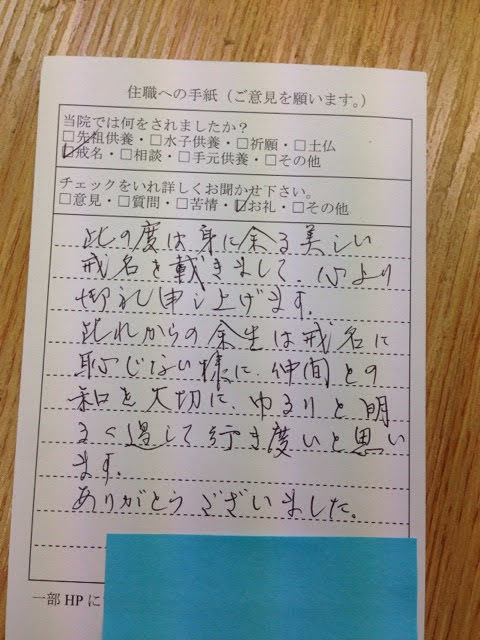 住職への手紙（ご意見を願います。）
当院では何をされましたか？
□先祖供養・□水子供養・□祈願・□土仏
☑戒名・□相談・□手元供養・□その他
チェックをいれ詳しくお聞かせ下さい。
□意見・□質問・□苦情・☑お礼・□その他
此の度は身に余る美しい
戒名を戴きまして、心より
御礼申し上げます。
此れからの余生は戒名に
恥じない様に、仲間との
和を大切に、ゆるりと明
るく過して行き度いと思い
ます。
ありがとうございました。
一部HPに